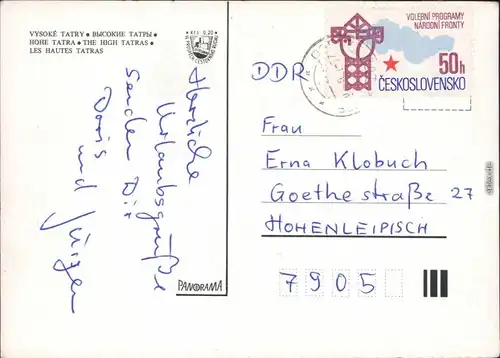 VYSOKÉ TATRY • ВЫСОКИЕ ТАТРЫ •
HOHE TATRA • THE HIGH TATRAS •
LES HAUTES TATRAS
Kčs 0,20
Herzliche
Urlaubsgrüße
senden Dir
Doris
und Jürgen
PANORAMA
VOLEBNÍ PROGRAMY
NÁRODNÍ FRONTY
50h
ČESKOSLOVENSKO
DDR
Frau
Erna Klobuch
Goethestraße 27
HOHENLEIPISCH
7905